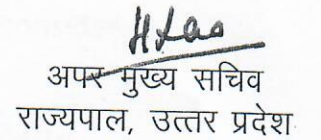 अपर मुख्य सचिव
राज्यपाल, उत्तर प्रदेश